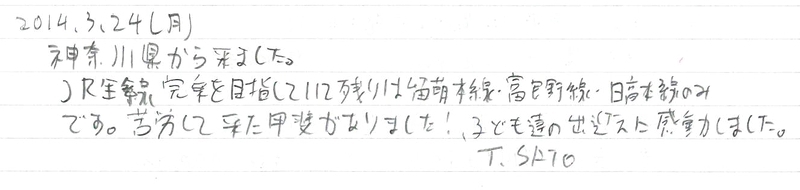 2014.3.24(月)
神奈川県から来ました。
JR全線完乗を目指していて残りは留萌本線・富良野線・日高本線のみ
です。苦労して来た甲斐がありました!、子ども達の出迎えに感動しました。
T. SATO